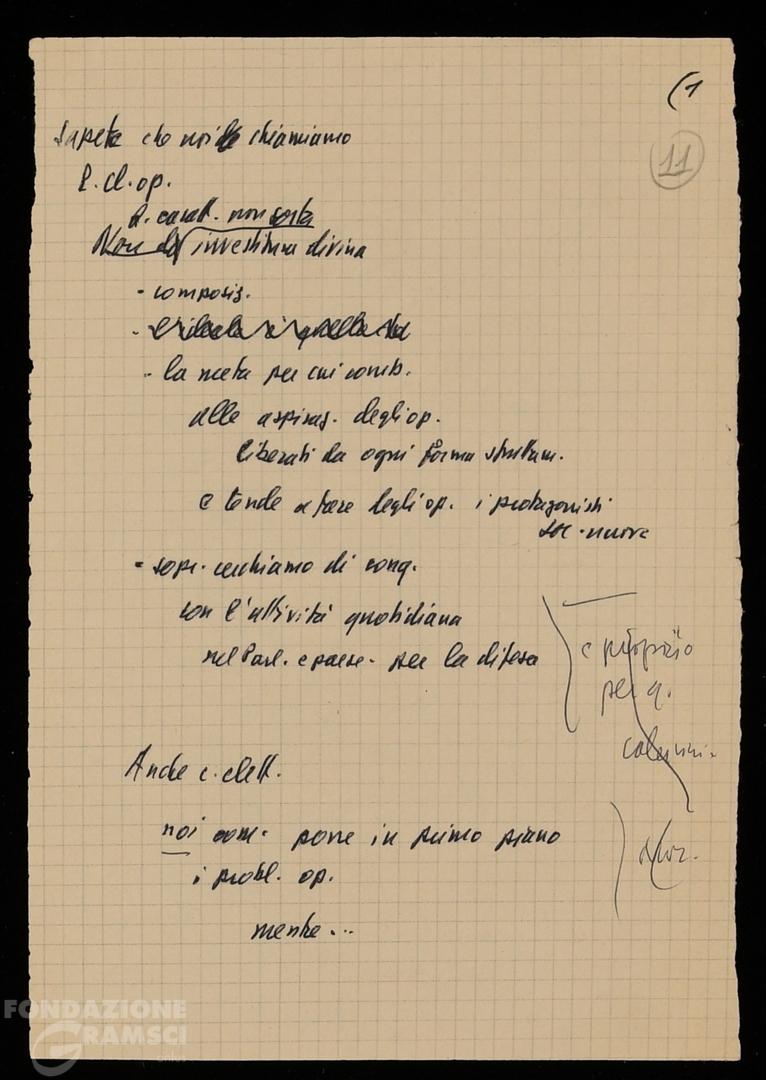 (1
11
Sapete che noi chiamiamo
P. cl. op.
Q. caratt. non sorta
Non da investitura divina
- composiz.
- la meta per cui comb.
alle aspiraz. degli op.
liberati da ogni forma sfruttam.
e tende a fare degli op. i protagonisti
soc. nuova
- sopr. cerchiamo di conq.
con l'attività quotidiana
nel Parl. e paese. per la difesa
e proprio
per q.
calunni.
Anche c. elett.
noi com. porre in primo piano
i probl. op.
mentre...
FONDAZIONE
GRAMSCI
onlus